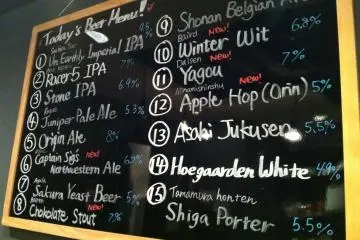 Today's Beer Menu!
① Un Earthly Imperial IPA
② Racer5 IPA 7%
③ Stone IPA 6.9%
④ Juniper Pale Ale 5.3%
⑤ Origin Ale 8%
⑥ Captain Sigs New!
Northwestern Ale
⑦ Sakura Yeast Beer 5%
⑧ Chokolate Stout 7%
⑨ Shonan Belgian
Baird New! 6.8%
⑩ Winter Wit
Daisen New! 7%
⑪ Yagou
Minamishinshu New!
⑫ Apple Hop (Orin) 5%
⑬ Asahi Jukusen 5.5%
⑭ Hoegaarden White 4.9%
⑮ Tamamura honten
Shiga Porter 5.5%